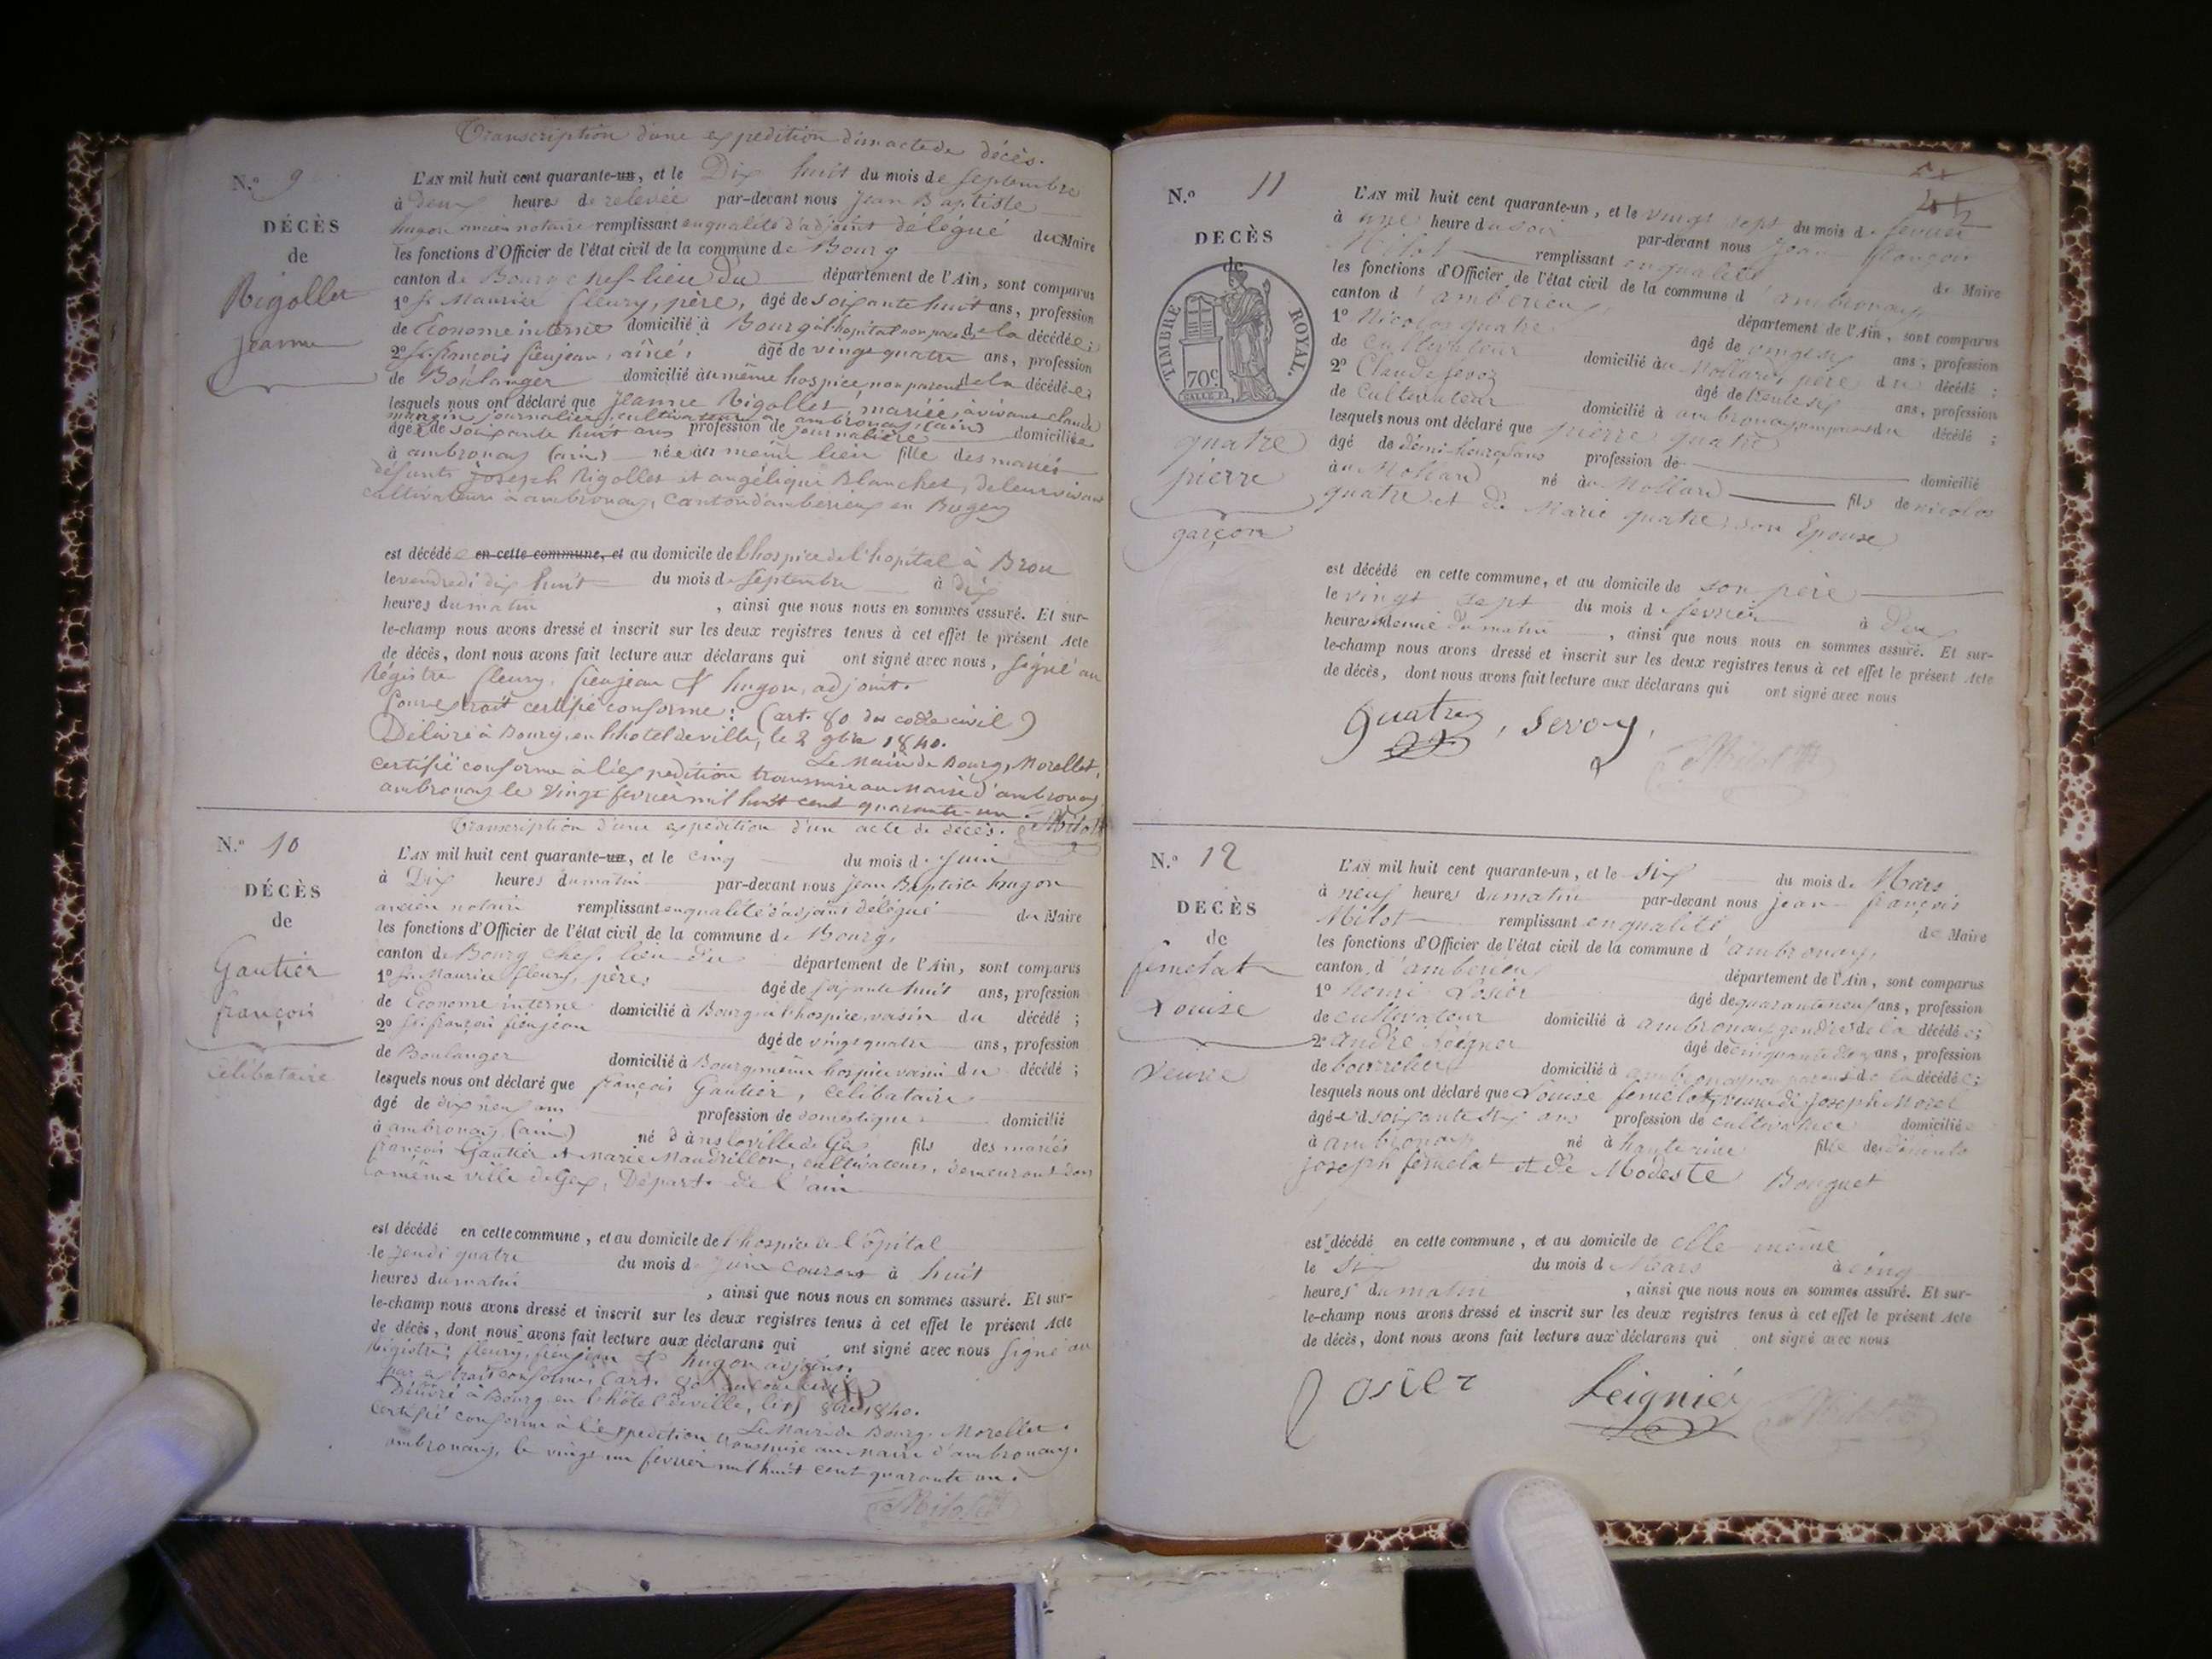 Transcription d'une expedition d'un acte de décès.
N.° 9
DÉCÈS
de
Rigollet
Jeanne
L'AN mil huit cent quarante-un, et le Dix huit du mois de Septembre
à deux heures de relevée par-devant nous Jean Baptiste
hugon ancien notaire remplissant en qualité d'adjoint délégué du Maire
les fonctions d'Officier de l'état civil de la commune de Bourg
canton de Bourg chef-lieu du département de l'Ain, sont comparus
1° Sr. Maurice fleury, père, âgé de soixante huit ans, profession
de Econome interne domicilié à Bourg à l'hopital non parent de la décédée;
2° Sr. françois sieujean, aîné, âgé de vingt quatre ans, profession
de Boulanger domicilié au même hospice, non parent de la décédée
lesquels nous ont déclaré que Jeanne Rigollet, mariée, à vivant claude
mangin journalier, cultivateur à ambronay, (ain)
âgée de soixante huit ans profession de journalière domiciliée
à ambronay (ain) née au même lieu fille des mariés
défunts Joseph Rigollet et angélique Blanchet, de leur vivant
cultivateurs à ambronay, canton d'ambérieux en Bugey
est décédée en cette commune, et au domicile de l'hospice de l'hopital à Brou
le vendredi dix huit du mois de Septembre à dix
heures du matin , ainsi que nous nous en sommes assuré. Et sur-
le-champ nous avons dressé et inscrit sur les deux registres tenus à cet effet le présent Acte
de décès, dont nous avons fait lecture aux déclarans qui ont signé avec nous, signé au
Régistre fleury, sieujean & hugon, adjoint.
Pour extrait certifié conforme: (art. 80 du code civil)
Délivré à Bourg, en l'hotel de ville, le 2 9bre 1840.
Le Maire de Bourg, Morellet,
certifié conforme à l'expedition transmise au Maire d'ambronay
ambronay le vingt fevrier mil huit cent quarante-un. Milot
Transcription d'une expedition d'un acte de décès.
N.° 10
DÉCÈS
de
Gautier
françois
célibataire
L'AN mil huit cent quarante-un, et le cinq du mois de Juin
à Dix heures du matin par-devant nous Jean Baptiste hugon
ancien notaire remplissant en qualité d'adjoint délégué du Maire
les fonctions d'Officier de l'état civil de la commune de Bourg,
canton de Bourg chef-lieu du département de l'Ain, sont comparus
1° Sr. Maurice fleury, père, âgé de soixante huit ans, profession
de Econome interne domicilié à Bourg à l'hospice, voisin du décédé ;
2° Sr. françois sieujean âgé de vingt quatre ans, profession
de Boulanger domicilié à Bourg même hospice voisin du décédé ;
lesquels nous ont déclaré que françois Gautier, célibataire
âgé de dix neuf ans profession de domestique domicilié
à ambronay (ain) né dans la ville de Gex fils des mariés
françois Gautier et Marie Maudrillon, cultivateurs, demeurant dans
la même ville de Gex, Départ. de l'ain
est décédé en cette commune, et au domicile de l'hospice de l'ôpital
le Jeudi quatre du mois de juin courant à huit
heures du matin , ainsi que nous nous en sommes assuré. Et sur-
le-champ nous avons dressé et inscrit sur les deux registres tenus à cet effet le présent Acte
de décès, dont nous avons fait lecture aux déclarans qui ont signé avec nous signé au
Régistre; fleury, sieujean & hugon adjoint.
par extrait conforme (art. 80 du code civil)
Délivré à Bourg en l'hôtel de ville, le 8bre 1840.
Le Maire de Bourg, Morellet.
certifié conforme à l'expedition transmise au Maire d'ambronay.
ambronay, le vingt un fevrier mil huit cent quarante un.
Milot
N.° 11
DECÈS
de
TIMBRE ROYAL.
70c.
quatre
pierre
garçon
L'AN mil huit cent quarante-un, et le vingt sept du mois de fevrier
à une heure du soir par-devant nous Jean françois
Milot remplissant en qualité de Maire
les fonctions d'Officier de l'état civil de la commune d'ambronay
canton d'ambérieux département de l'Ain, sont comparus
1° Nicolas quatre âgé de vingt six ans, profession
de cultivateur domicilié au Mollard, père du décédé ;
2° Claude servoz âgé de trente six ans, profession
de cultivateur domicilié à ambronay, non parent du décédé ;
lesquels nous ont déclaré que pierre quatre
âgé de demi-heure profession de domicilié
au Mollard né au Mollard fils de nicolas
quatre et de Marie quatre, son Epouse
est décédé en cette commune, et au domicile de son père
le vingt sept du mois de fevrier à Deux
heures et demie du matin , ainsi que nous nous en sommes assuré. Et sur-
le-champ nous avons dressé et inscrit sur les deux registres tenus à cet effet le présent Acte
de décès, dont nous avons fait lecture aux déclarans qui ont signé avec nous
quatre, Servoy,
Milot
N.° 12
DECÈS
de
femelat
Louise
veuve
L'AN mil huit cent quarante-un, et le six du mois de Mars
à neuf heures du matin par-devant nous jean françois
Milot remplissant en qualité de Maire
les fonctions d'Officier de l'état civil de la commune d'ambronay,
canton d'ambérieux département de l'Ain, sont comparus
1° henri Losier âgé de quarante neuf ans, profession
de cultivateur domicilié à ambronay gendre de la décédée;
2° andré âgé de cinquante ans, profession
de bourrelier domicilié à ambronay non parent de la décédée;
lesquels nous ont déclaré que Louise femelat, veuve de Joseph Morel
âgée de soixante six ans profession de cultivatrice domiciliée
à ambronay né à hauterive fille des défunts
joseph femelat et de Modeste Bouquet
est décédé en cette commune, et au domicile de elle même
le Six du mois de Mars à cinq
heures du matin , ainsi que nous nous en sommes assuré. Et sur-
le-champ nous avons dressé et inscrit sur les deux registres tenus à cet effet le présent Acte
de décès, dont nous avons fait lecture aux déclarans qui ont signé avec nous
Losier Leignié Milot